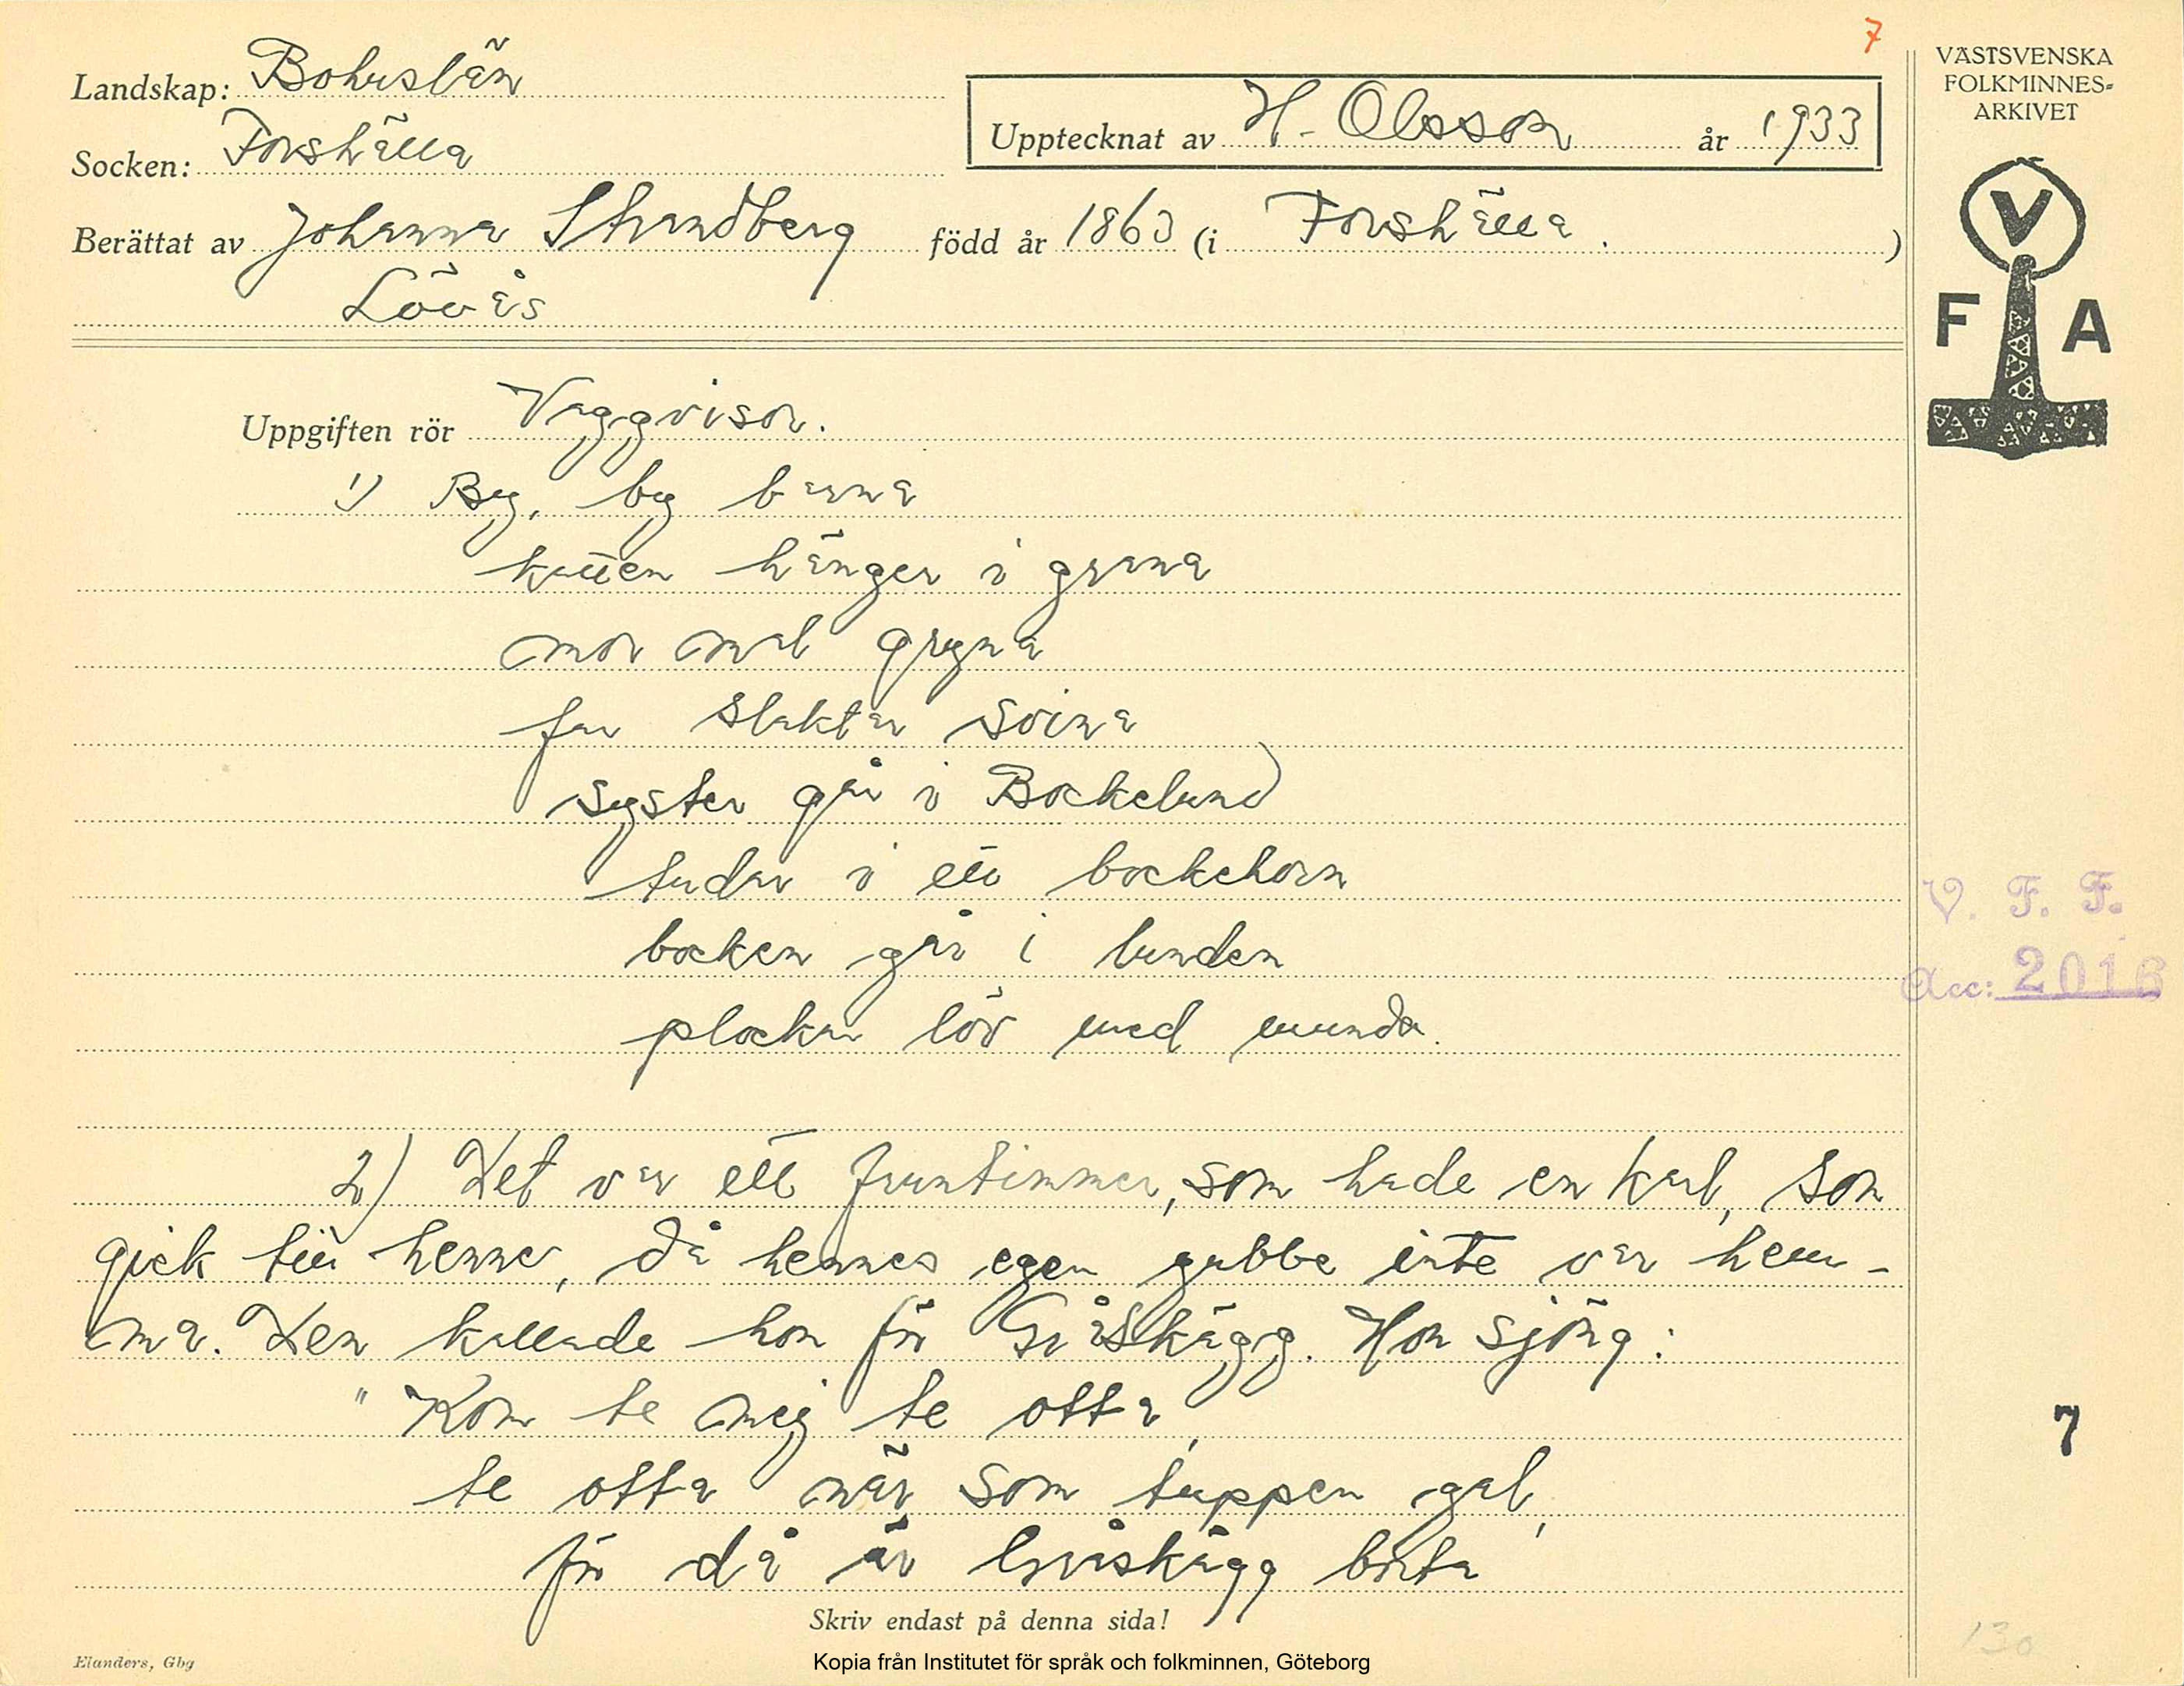 7
Landskap: Bohuslän
Socken: Forshälla
Upptecknat av H. Olsson år 1933
Berättat av Johanna Strandberg född år 1863 (i Forshälla.)
Lövås
VÄSTSVENSKA
FOLKMINNES-
ARKIVET
V
F A
Uppgiften rör Vaggvisor.
1) By, by barna
katten hänger i garna
mor mal gryna
far slaktar svina
syster går i Bockelund
tudar i ett bockehorn
bocken går i lunden
plockar löv med munda.
V. F. F.
Acc: 2016
2) Det var ett fruntimmer, som hade en karl, som
gick till henne, då hennes egen gubbe inte var hem-
ma. Den kallade hon för Gråskägg. Hon sjöng:
"Kom te mej te otta,
te otta när som tuppen gal,
för då är Gråskägg borta
7
Skriv endast på denna sida!
Elanders, Gbg
Kopia från Institutet för språk och folkminnen, Göteborg
130